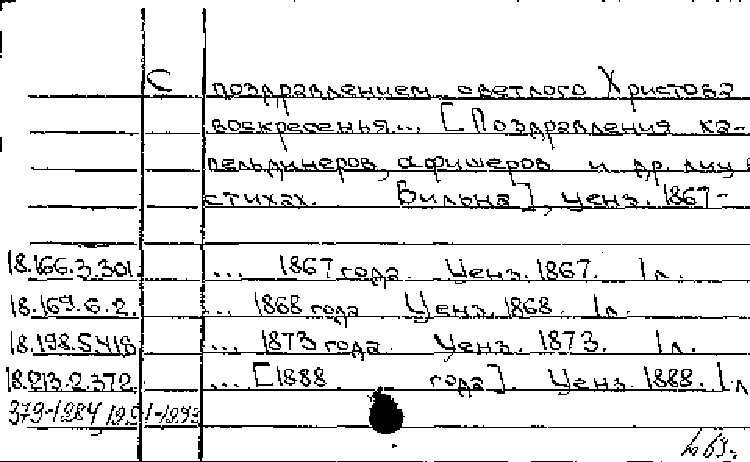 С поздравлением светлого Христова
воскресенья... [Поздравления ка-
пельдинеров, афишеров и др. лиц в
стихах. Вильна], ценз. 1867-
18.166.3.301. ... 1867 года. Ценз. 1867. 1 л.
18.169.6.2. ... 1868 года Ценз. 1868. 1 л.
18.198.5.418 ... 1873 года. Ценз. 1873. 1 л.
18.213.2.372 ... [1888 года]. Ценз. 1888. 1 л